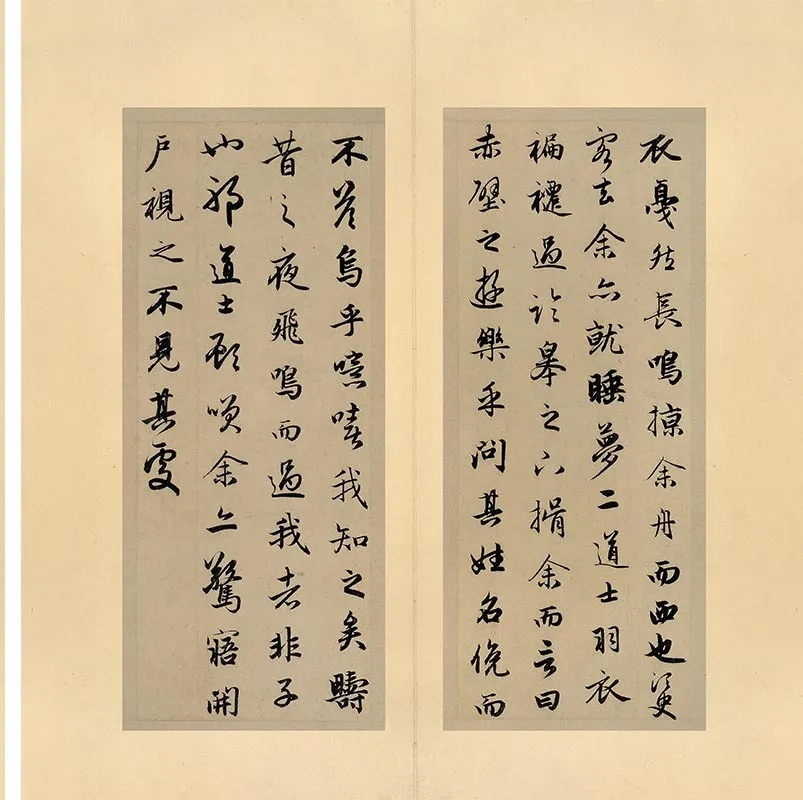 衣戛然長鳴掠余舟而西也須臾
客去余亦就睡夢二道士羽衣
褊褼過臨皋之下揖余而言曰
赤壁之遊樂乎問其姓名俛而
不答烏乎噫嘻我知之矣疇
昔之夜飛鳴而過我者非子
也邪道士顧咲余亦驚寤開
戶視之不見其處